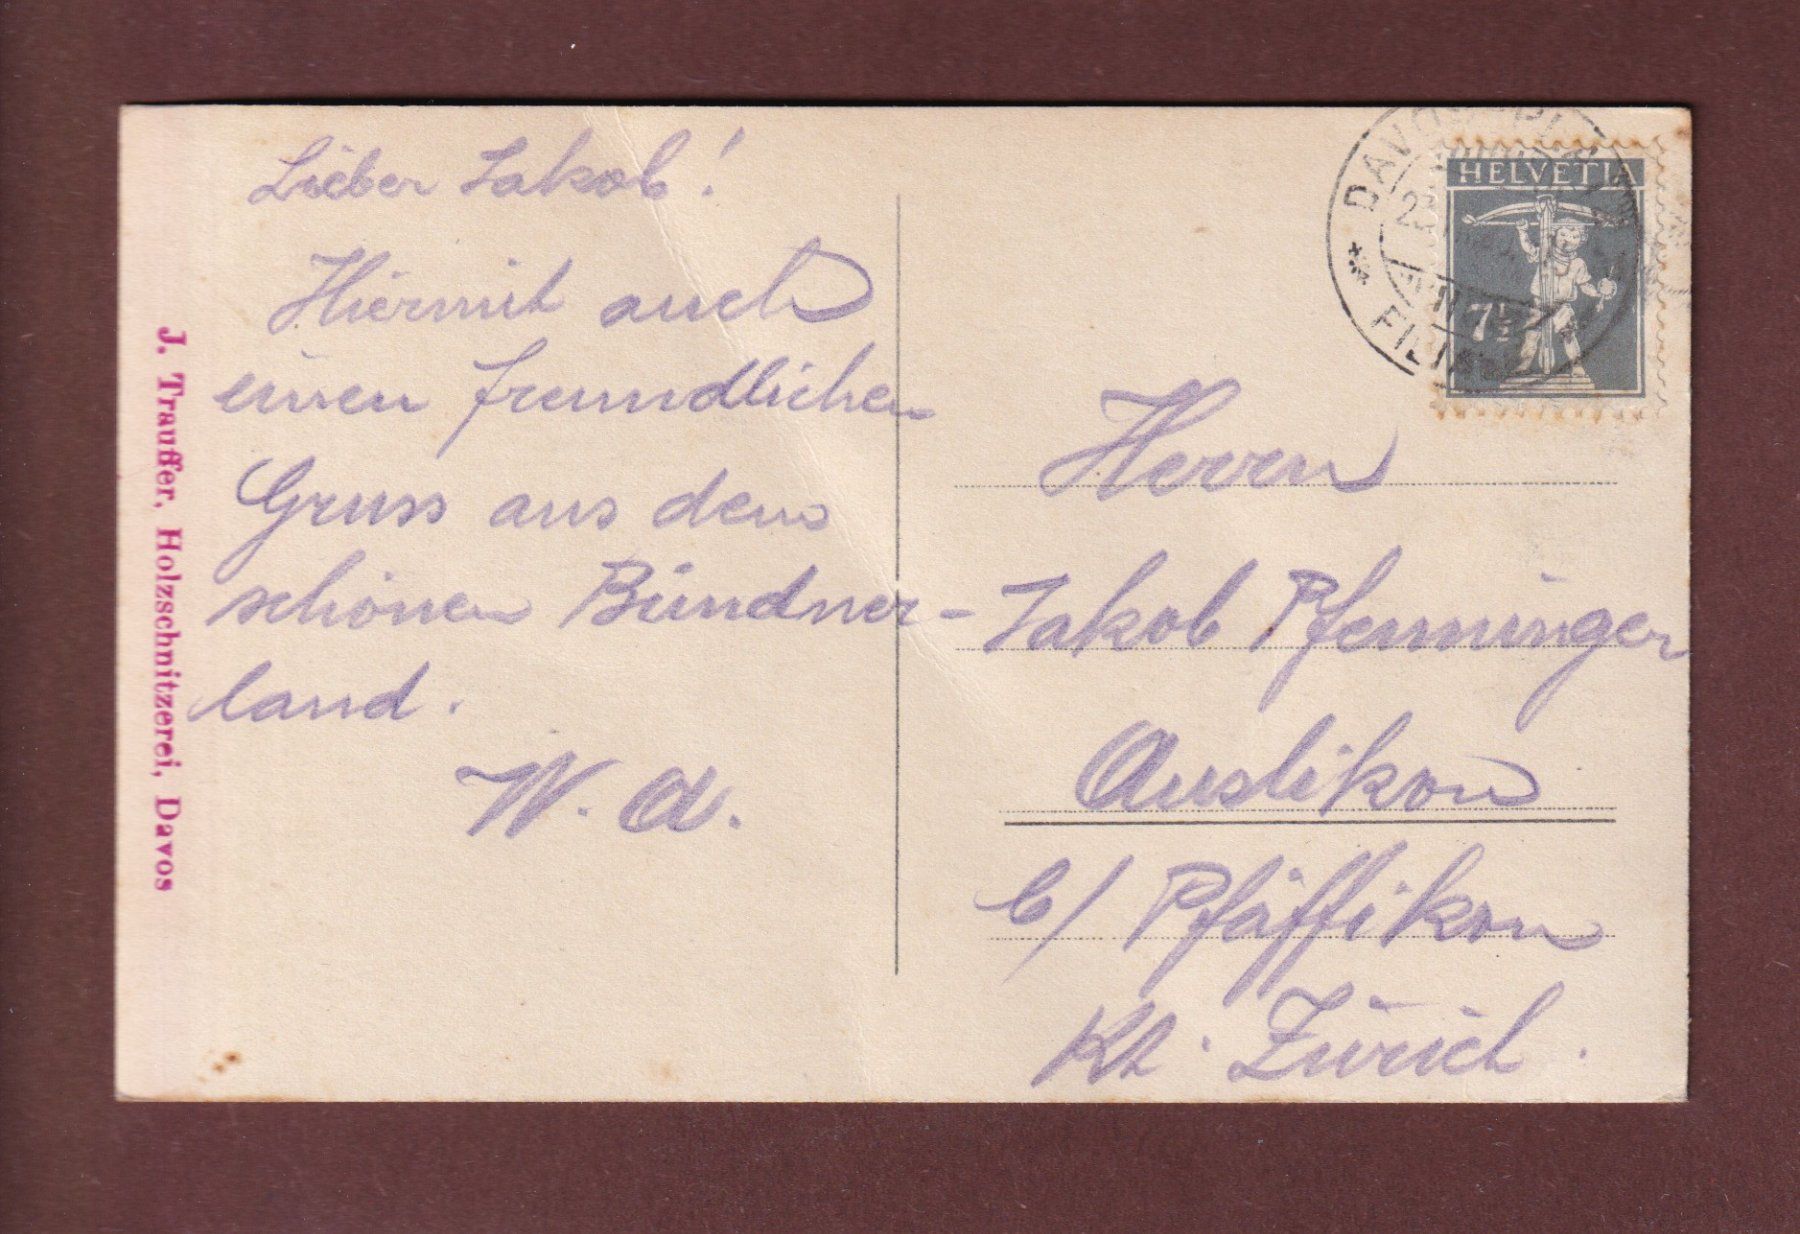 Lieber Jakob!
Hiermit auch
einen freundlichen
Gruss aus dem
schönen Bündner-
land.
W. A.
J. Trauffer, Holzschnitzerei, Davos
HELVETIA
7½
DAVOS-PLATZ
FILIALE
Herrn
Jakob Pfenninger
Auslikon
b/ Pfäffikon
Kt. Zürich.